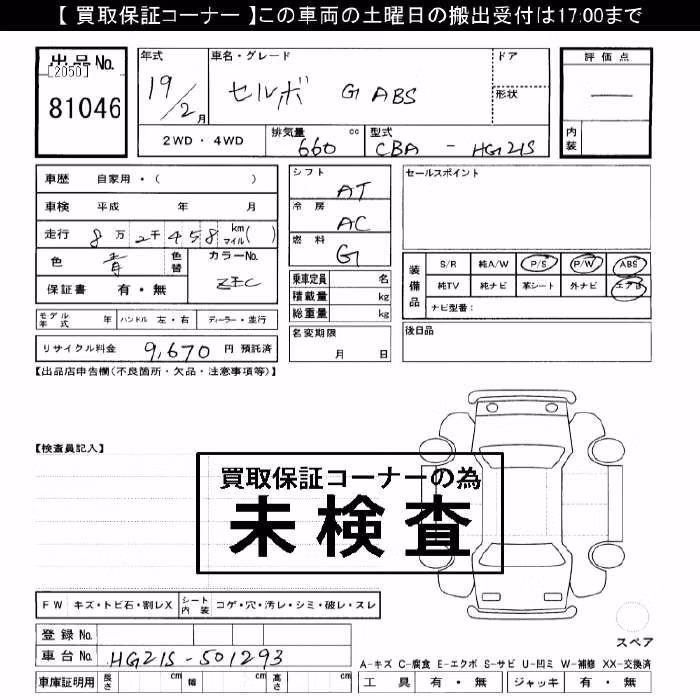 【 買取保証コーナー 】この車両の土曜日の搬出受付は17:00まで
出品No.
[2050]
81046
年式 19/2月
車名・グレード セルボ G ABS
ドア
形状
2WD・4WD
排気量 660 cc
型式 CBA - HG21S
評価点
―
内装
車歴 自家用・( )
車検 平成 年 月
走行 8万2千458 km マイル( )
色 青 色替
カラーNo. ZEC
保証書 有・無
モデル年式 年 ハンドル 左・右 ディーラー・並行
リサイクル料金 9,670 円 預託済
シフト AT
冷房 AC
燃料 G
乗車定員 名
積載量 kg
総重量 kg
名変期限
月 日
セールスポイント
装備品
S/R 純A/W P/S P/W ABS
純TV 純ナビ 革シート 外ナビ エアB
ナビ型番:
後日品
【出品店申告欄(不良箇所・欠品・注意事項等)】
【検査員記入】
買取保証コーナーの為
未検査
FW キズ・トビ石・割レX シート内装 コゲ・穴・汚レ・シミ・破レ・スレ
登録No.
車台No. HG21S-501293
車庫証明用 長さ cm 幅 cm 高さ cm
スペア
A-キズ C-腐食 E-エクボ S-サビ U-凹ミ W-補修 XX-交換済
工具 有・無 ジャッキ 有・無